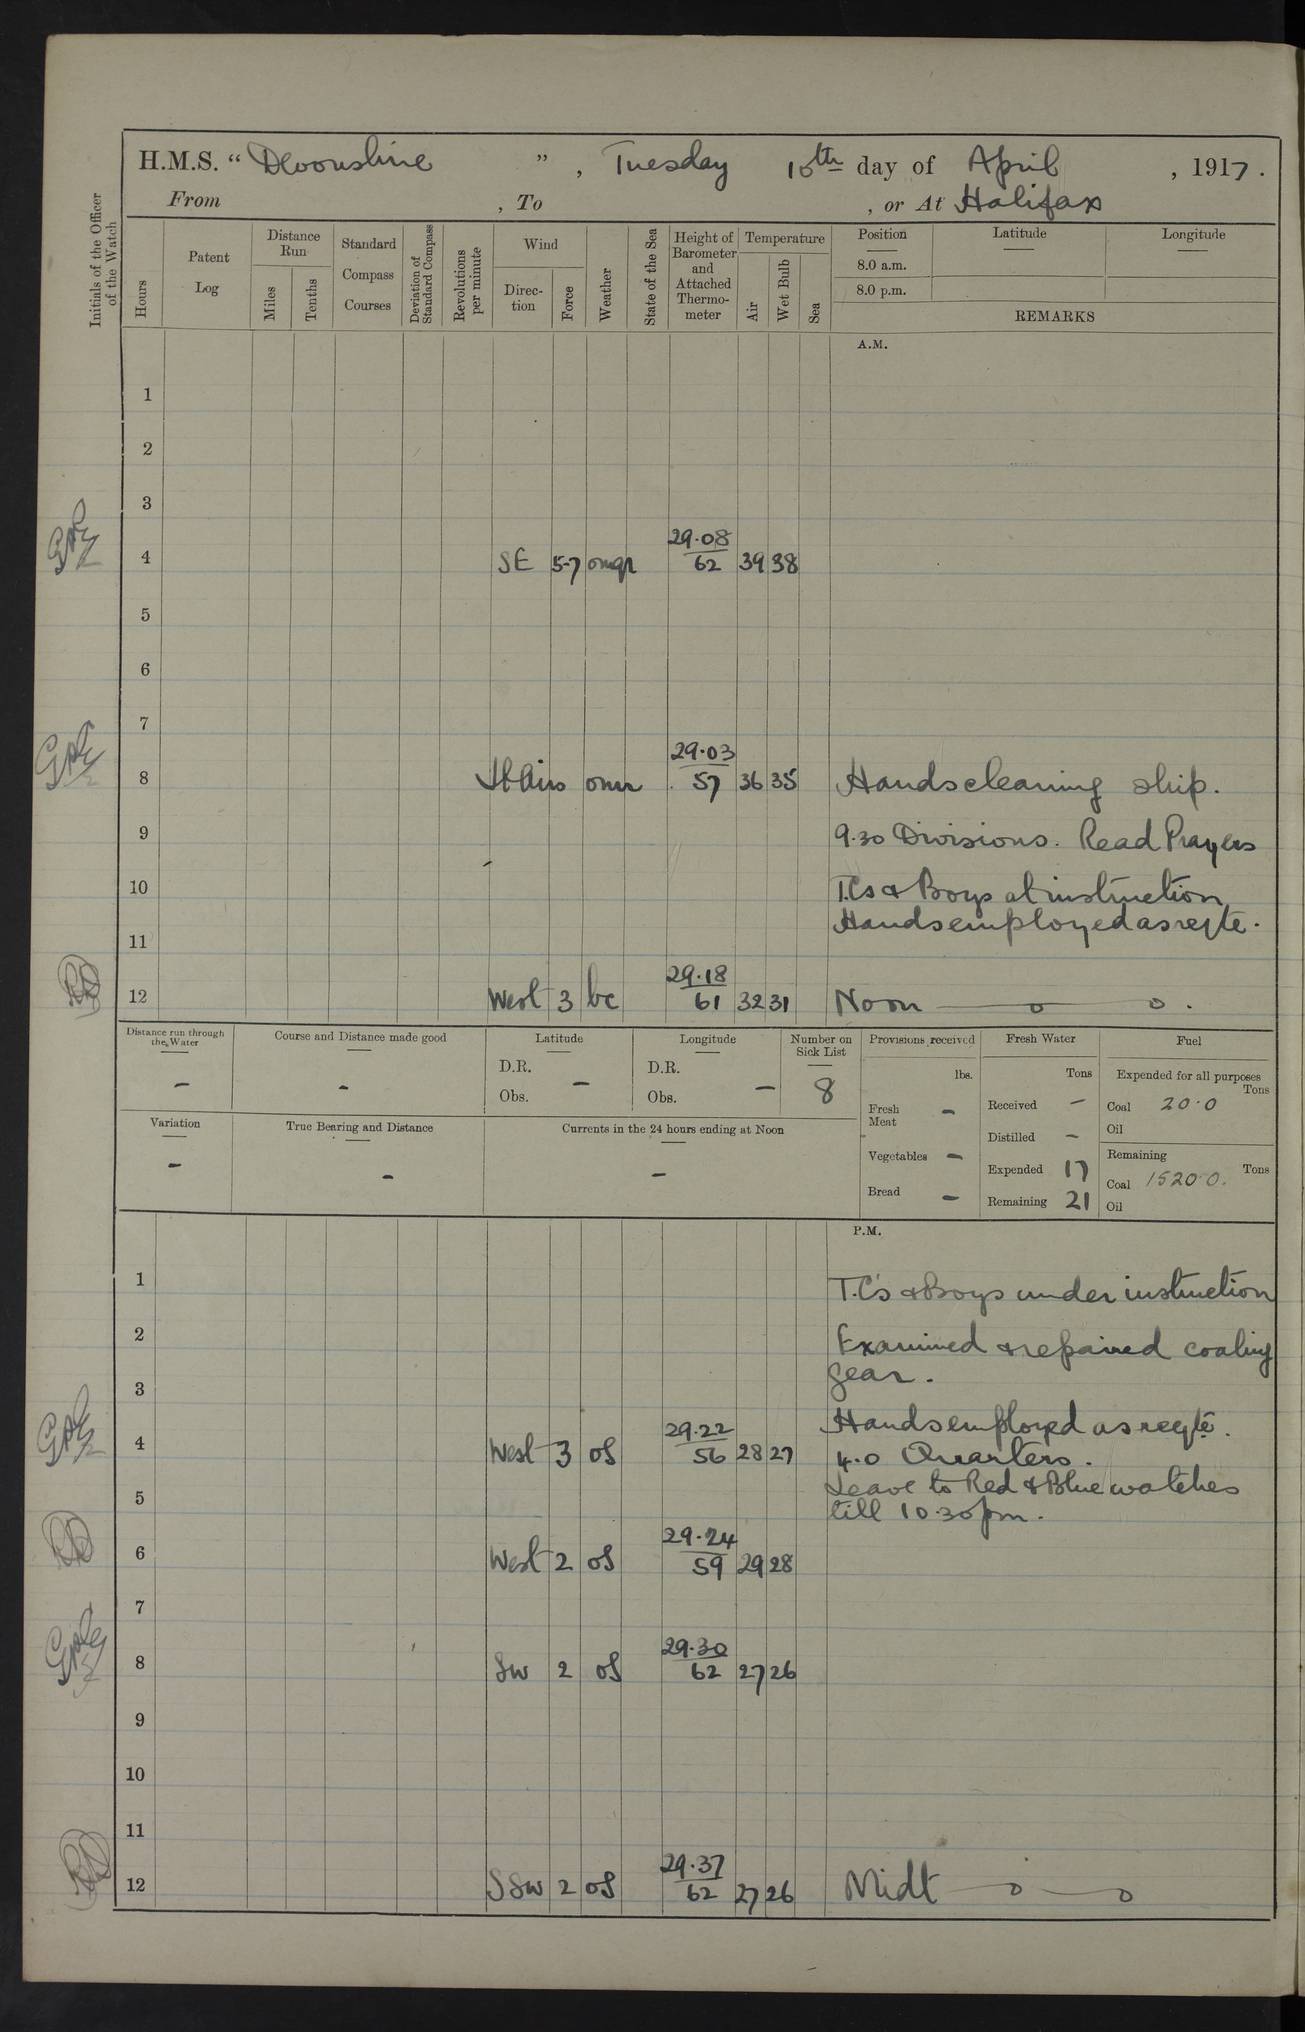 H.M.S. “ Devonshire ” , Tuesday 10th day of April , 1917.
From , To , or At Halifax
Initials of the Officer of the Watch
Hours
Patent Log
Distance Run
Miles
Tenths
Standard Compass Courses
Deviation of Standard Compass
Revolutions per minute
Wind
Direction
Force
Weather
State of the Sea
Height of Barometer and Attached Thermometer
Temperature
Air
Wet Bulb
Sea
Position Latitude Longitude
8.0 a.m.
8.0 p.m.
REMARKS
A.M.
1
2
3
29.08
4 SE 5-7 omqr 62 39 38
5
6
7
29.03
8 Lt Airs omr 57 36 35 Hands cleaning ship.
9 9.30 Divisions. Read Prayers
10 T.Cs & Boys at instruction
Hands employed as reqte.
11
29.18
12 West 3 bc 61 32 31 Noon
Distance run through the Water –
Course and Distance made good –
Latitude
D.R. –
Obs.
Longitude
D.R.
Obs. –
Number on Sick List
8
Provisions received
lbs.
Fresh Meat –
Vegetables –
Bread –
Fresh Water
Tons
Received –
Distilled –
Expended 17
Remaining 21
Fuel
Expended for all purposes
Tons
Coal 20.0
Oil
Remaining
Tons
Coal 1520.0.
Oil
Variation –
True Bearing and Distance –
Currents in the 24 hours ending at Noon –
P.M.
1 T.C's & Boys under instruction
2 Examined & repaired coaling
gear.
3
Hands employed as reqte.
29.22
4 West 3 os 56 28 27 4.0 Quarters.
Leave to Red & Blue watches
5 till 10.30pm.
29.24
6 West 2 os 59 29 28
7
29.30
8 SW 2 os 62 27 26
9
10
11
29.37
12 SSW 2 os 62 27 26 Midt